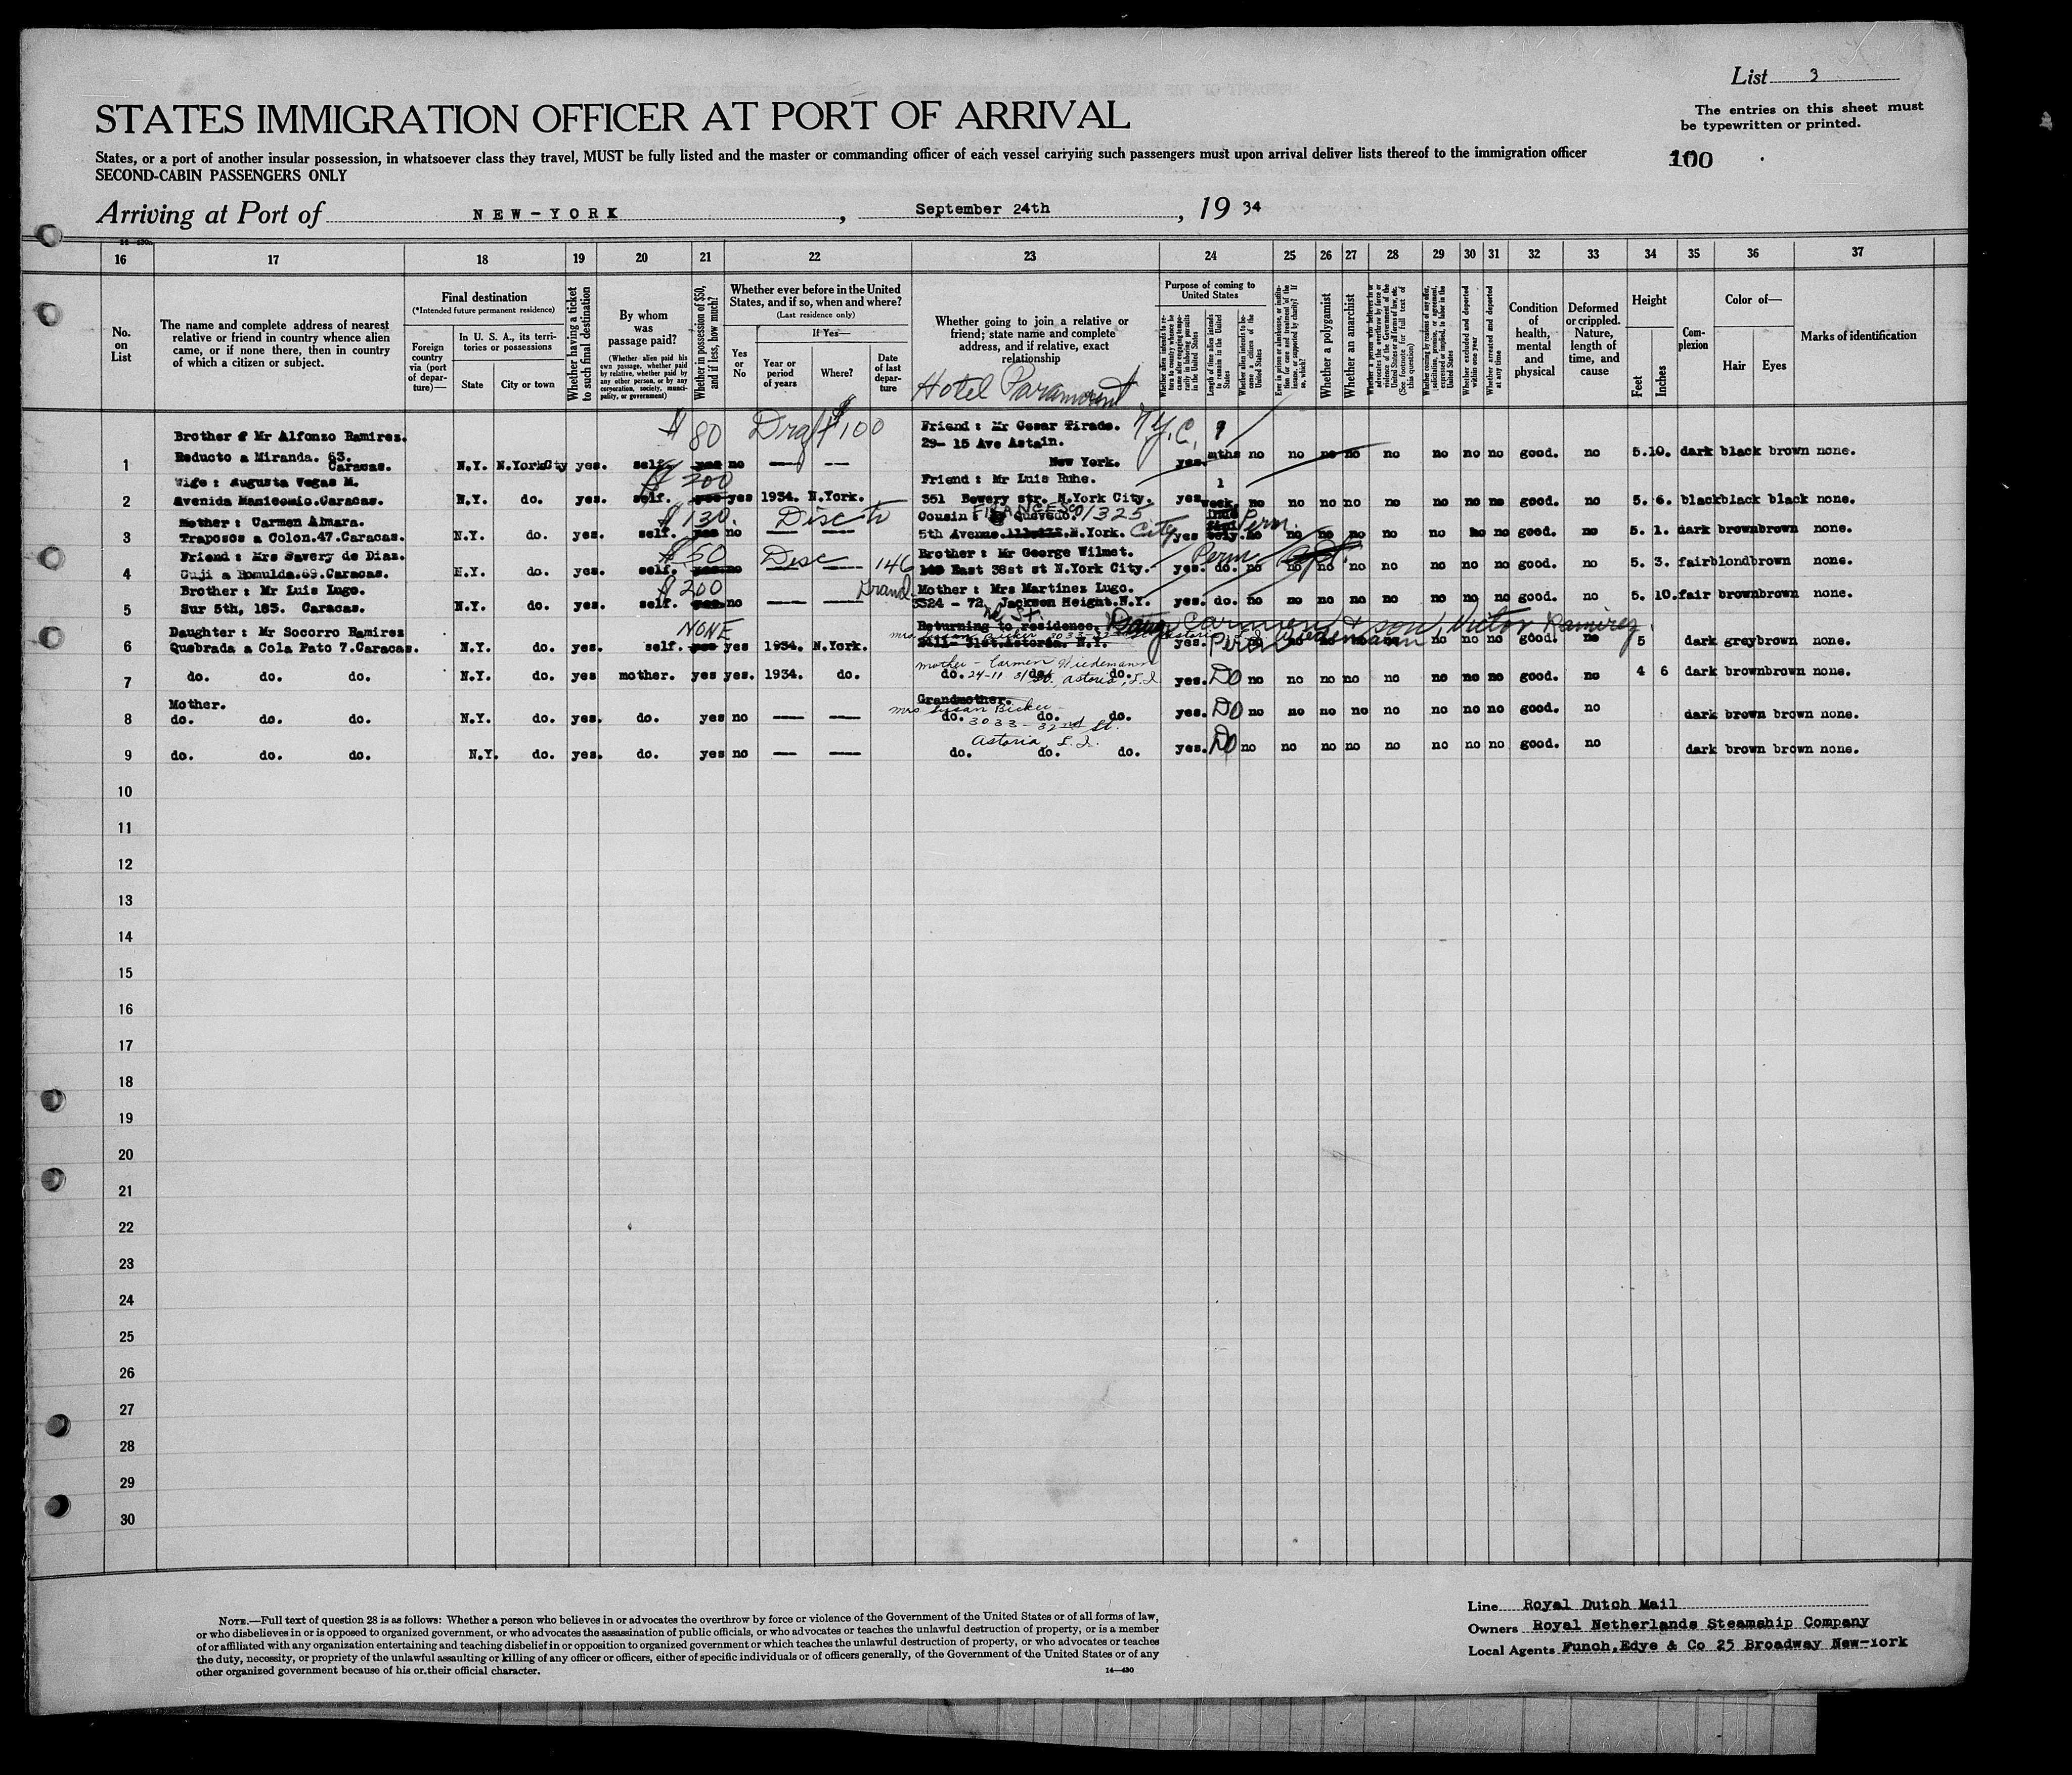 List 3
STATES IMMIGRATION OFFICER AT PORT OF ARRIVAL
The entries on this sheet must
be typewritten or printed.
States, or a port of another insular possession, in whatsoever class they travel, MUST be fully listed and the master or commanding officer of each vessel carrying such passengers must upon arrival deliver lists thereof to the immigration officer
SECOND-CABIN PASSENGERS ONLY
100
Arriving at Port of NEW-YORK, September 24th, 1934
16 17 18 19 20 21 22 23 24 25 26 27 28 29 30 31 32 33 34 35 36 37
No. on List
The name and complete address of nearest relative or friend in country whence alien came, or if none there, then in country of which a citizen or subject.
Final destination
(*Intended future permanent residence)
Foreign country via (port of departure)—
In U. S. A., its territories or possessions
State
City or town
Whether having a ticket to such final destination
By whom was passage paid?
(Whether alien paid his own passage, whether paid by relative, whether paid by any other person, or by any corporation, society, municipality, or government)
Whether in possession of $50, and if less, how much?
Whether ever before in the United States, and if so, when and where?
(Last residence only)
Yes or No
If Yes—
Year or period of years
Where?
Date of last departure
Whether going to join a relative or friend; state name and complete address, and if relative, exact relationship
Hotel Paramount
Purpose of coming to United States
Whether alien intends to return to country whence he came after engaging temporarily in laboring pursuits in the United States
Length of time alien intends to remain in the United States
Whether alien intends to become a citizen of the United States
Ever in prison or almshouse, or institution for care and treatment of the insane, or supported by charity? If so, which?
Whether a polygamist
Whether an anarchist
Whether a person who believes in or advocates the overthrow by force or violence of the Government of the United States or all forms of law, etc. (See footnote for full text of this question)
Whether coming by reasons of any offer, solicitation, promise, or agreement, expressed or implied, to labor in the United States
Whether excluded and deported within one year
Whether arrested and deported at any time
Condition of health, mental and physical
Deformed or crippled. Nature, length of time, and cause
Height
Feet
Inches
Complexion
Color of—
Hair
Eyes
Marks of identification
Brother Mr Alfonzo Ramirez. $80 Draft $100 Friend : Mr Cesar Tirado. N.Y.C.
29- 15 Ave Astain.
1 Reducto a Miranda. 63. Caracas. N.Y. N.York Cty yes. self. yes no — — New York. yes. mths no no no no no no no no good. no 5. 10. dark black brown none.
Wife : Augusta Vegas M. $200 Friend : Mr Luis Ruhe. 1
2 Avenida Manicomio.Caracas. N.Y. do. yes. self. yes yes 1934. N.York. 351 Bowery str. N.York City. yes week. no no no no no no no no good. no 5. 6. black black black none.
Mother : Carmen Almara. $130. Disc to Cousin : Quevedo. 1325 Perm.
3 Traposos a Colon.47.Caracas. N.Y. do. yes. self. yes no — — 5th Avenue. N.York. City yes no no no no no no no no good. no 5. 1. dark brown brown none.
Friend : Mrs Savery de Diaz. $50 Disc 146 Brother : Mr George Wilmet. Perm
4 Guji a Romulda.69.Caracas. N.Y. do. yes. self. yes no — — East 38st st N.York City. yes. do. no no no no no no no no good. no 5. 3. fair blond brown none.
Brother : Mr Luis Lugo. $200 Grand Mother : Mrs Martinez Lugo.
5 Sur 5th, 183. Caracas. N.Y. do. yes. self. yes no — — 3324 - 72 Jackson Height.N.Y. yes. do. no no no no no no no no good. no 5. 10. fair brown brown none.
nd St.
Daughter : Mr Socorro Ramires NONE Returning to residence. Daug Carmen & son Victor Ramirez
6 Quebrada a Cola Pato 7.Caracas. N.Y. do. yes. self. yes yes 1934. N.York. 31st.Astoria. N.Y. yes. Perm no no no no no no no good. no 5 dark grey brown none.
Mrs. Susan Bicker 3033-32nd St. Astoria, L.I. Wiedemann
mother - Carmen Wiedemann
7 do. do. do. N.Y. do. yes mother. yes yes. 1934. do. do. 24-11 31 St. do. Astoria, L.I. yes. DO no no no no no no no no good. no 4 6 dark brown brown none.
Mother. Grandmother.
Mrs Susan Bicker -
8 do. do. do. N.Y. do. yes. do. yes no — — do. do. do. yes. DO no no no no no no no no good. no dark brown brown none.
3033 - 32nd St.
Astoria, L.I.
9 do. do. do. N.Y. do. yes. do. yes no — — do. do. do. yes. DO no no no no no no no no good. no dark brown brown none.
10
11
12
13
14
15
16
17
18
19
20
21
22
23
24
25
26
27
28
29
30
NOTE.—Full text of question 28 is as follows: Whether a person who believes in or advocates the overthrow by force or violence of the Government of the United States or of all forms of law,
or who disbelieves in or is opposed to organized government, or who advocates the assassination of public officials, or who advocates or teaches the unlawful destruction of property, or is a member
of or affiliated with any organization entertaining and teaching disbelief in or opposition to organized government or which teaches the unlawful destruction of property, or who advocates or teaches
the duty, necessity, or propriety of the unlawful assaulting or killing of any officer or officers, either of specific individuals or of officers generally, of the Government of the United States or of any
other organized government because of his or their official character.
14—430
Line Royal Dutch Mail
Owners Royal Netherlands Steamship Company
Local Agents Funch,Edye & Co 25 Broadway New-York